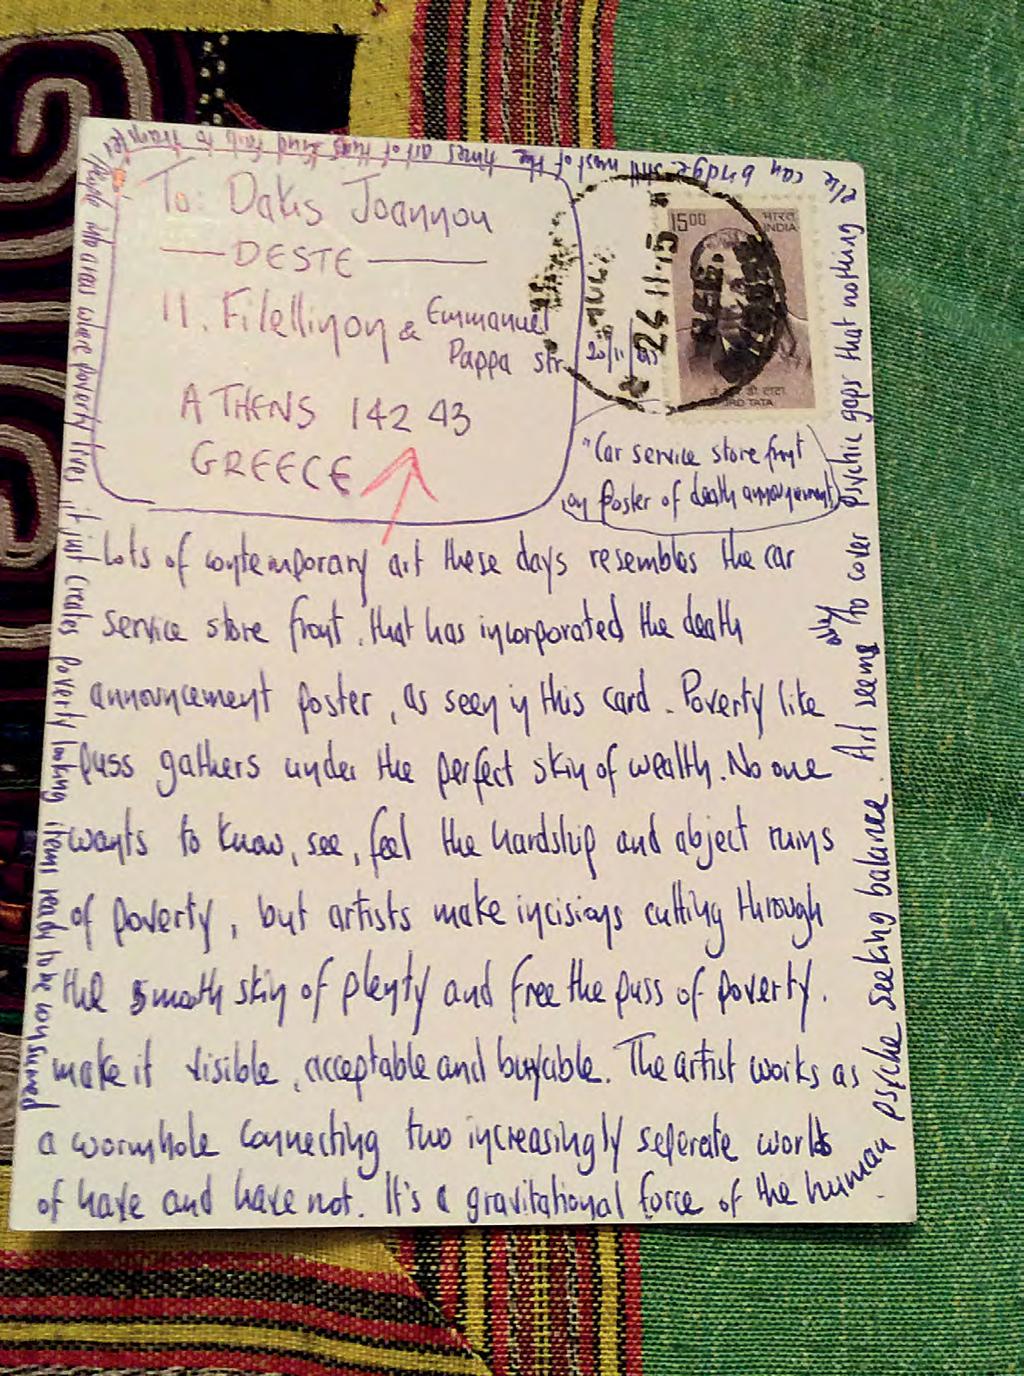 To: Dakis Joannou
DESTE
11. Filellinon & Emmanuel
Pappa str
ATHENS 142 43
GREECE
15.00
भारत
INDIA
24.11.15
20/11/
जे आर डी टाटा
JRD TATA
"Car service store front
on Poster of death announcement
Lots of contemporary art these days resembles the car
service store front, that has incorporated the death
announcement poster, as seen in this card. Poverty like
puss gathers under the perfect skin of wealth. No one
wants to know, see, feel the hardship and abject ruins
of poverty, but artists make incisions cutting through
the smooth skin of plenty and free the puss of poverty.
make it visible, acceptable and buyable. The artist works as
a wormhole connecting two increasingly seperate worlds
of have and have not. It's a gravitational force of the human
psyche seeking balance. Art seems only to cover psychic gaps that nothing
else can bridge. Still most of the times art of this kind fails to transfer
people into areas where poverty lives it just creates poverty looking items ready to be consumed